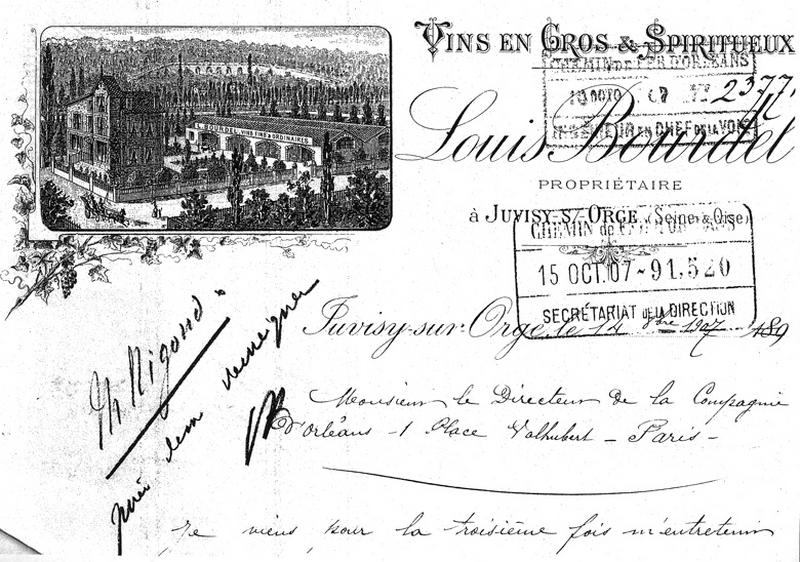 VINS EN GROS & SPIRITUEUX
CHEMIN DE FER D'ORLÉANS
2377
INGÉNIEUR EN CHEF DE LA VOIE
Louis Bourdel
PROPRIÉTAIRE
à JUVISY-S/-ORGE (Seine & Oise)
CHEMIN de FER D'ORLÉANS
15 OCT.07-91,520
SECRÉTARIAT DE LA DIRECTION
L. BOURDEL VINS FINS & ORDINAIRES
Juvisy-sur-Orge, le 14 8bre 1907 189
Mr Rigaud
prière d'en
Monsieur le Directeur de la Compagnie
d'Orléans - 1 Place Valhubert - Paris -
Je viens pour la troisième fois m'entretenir